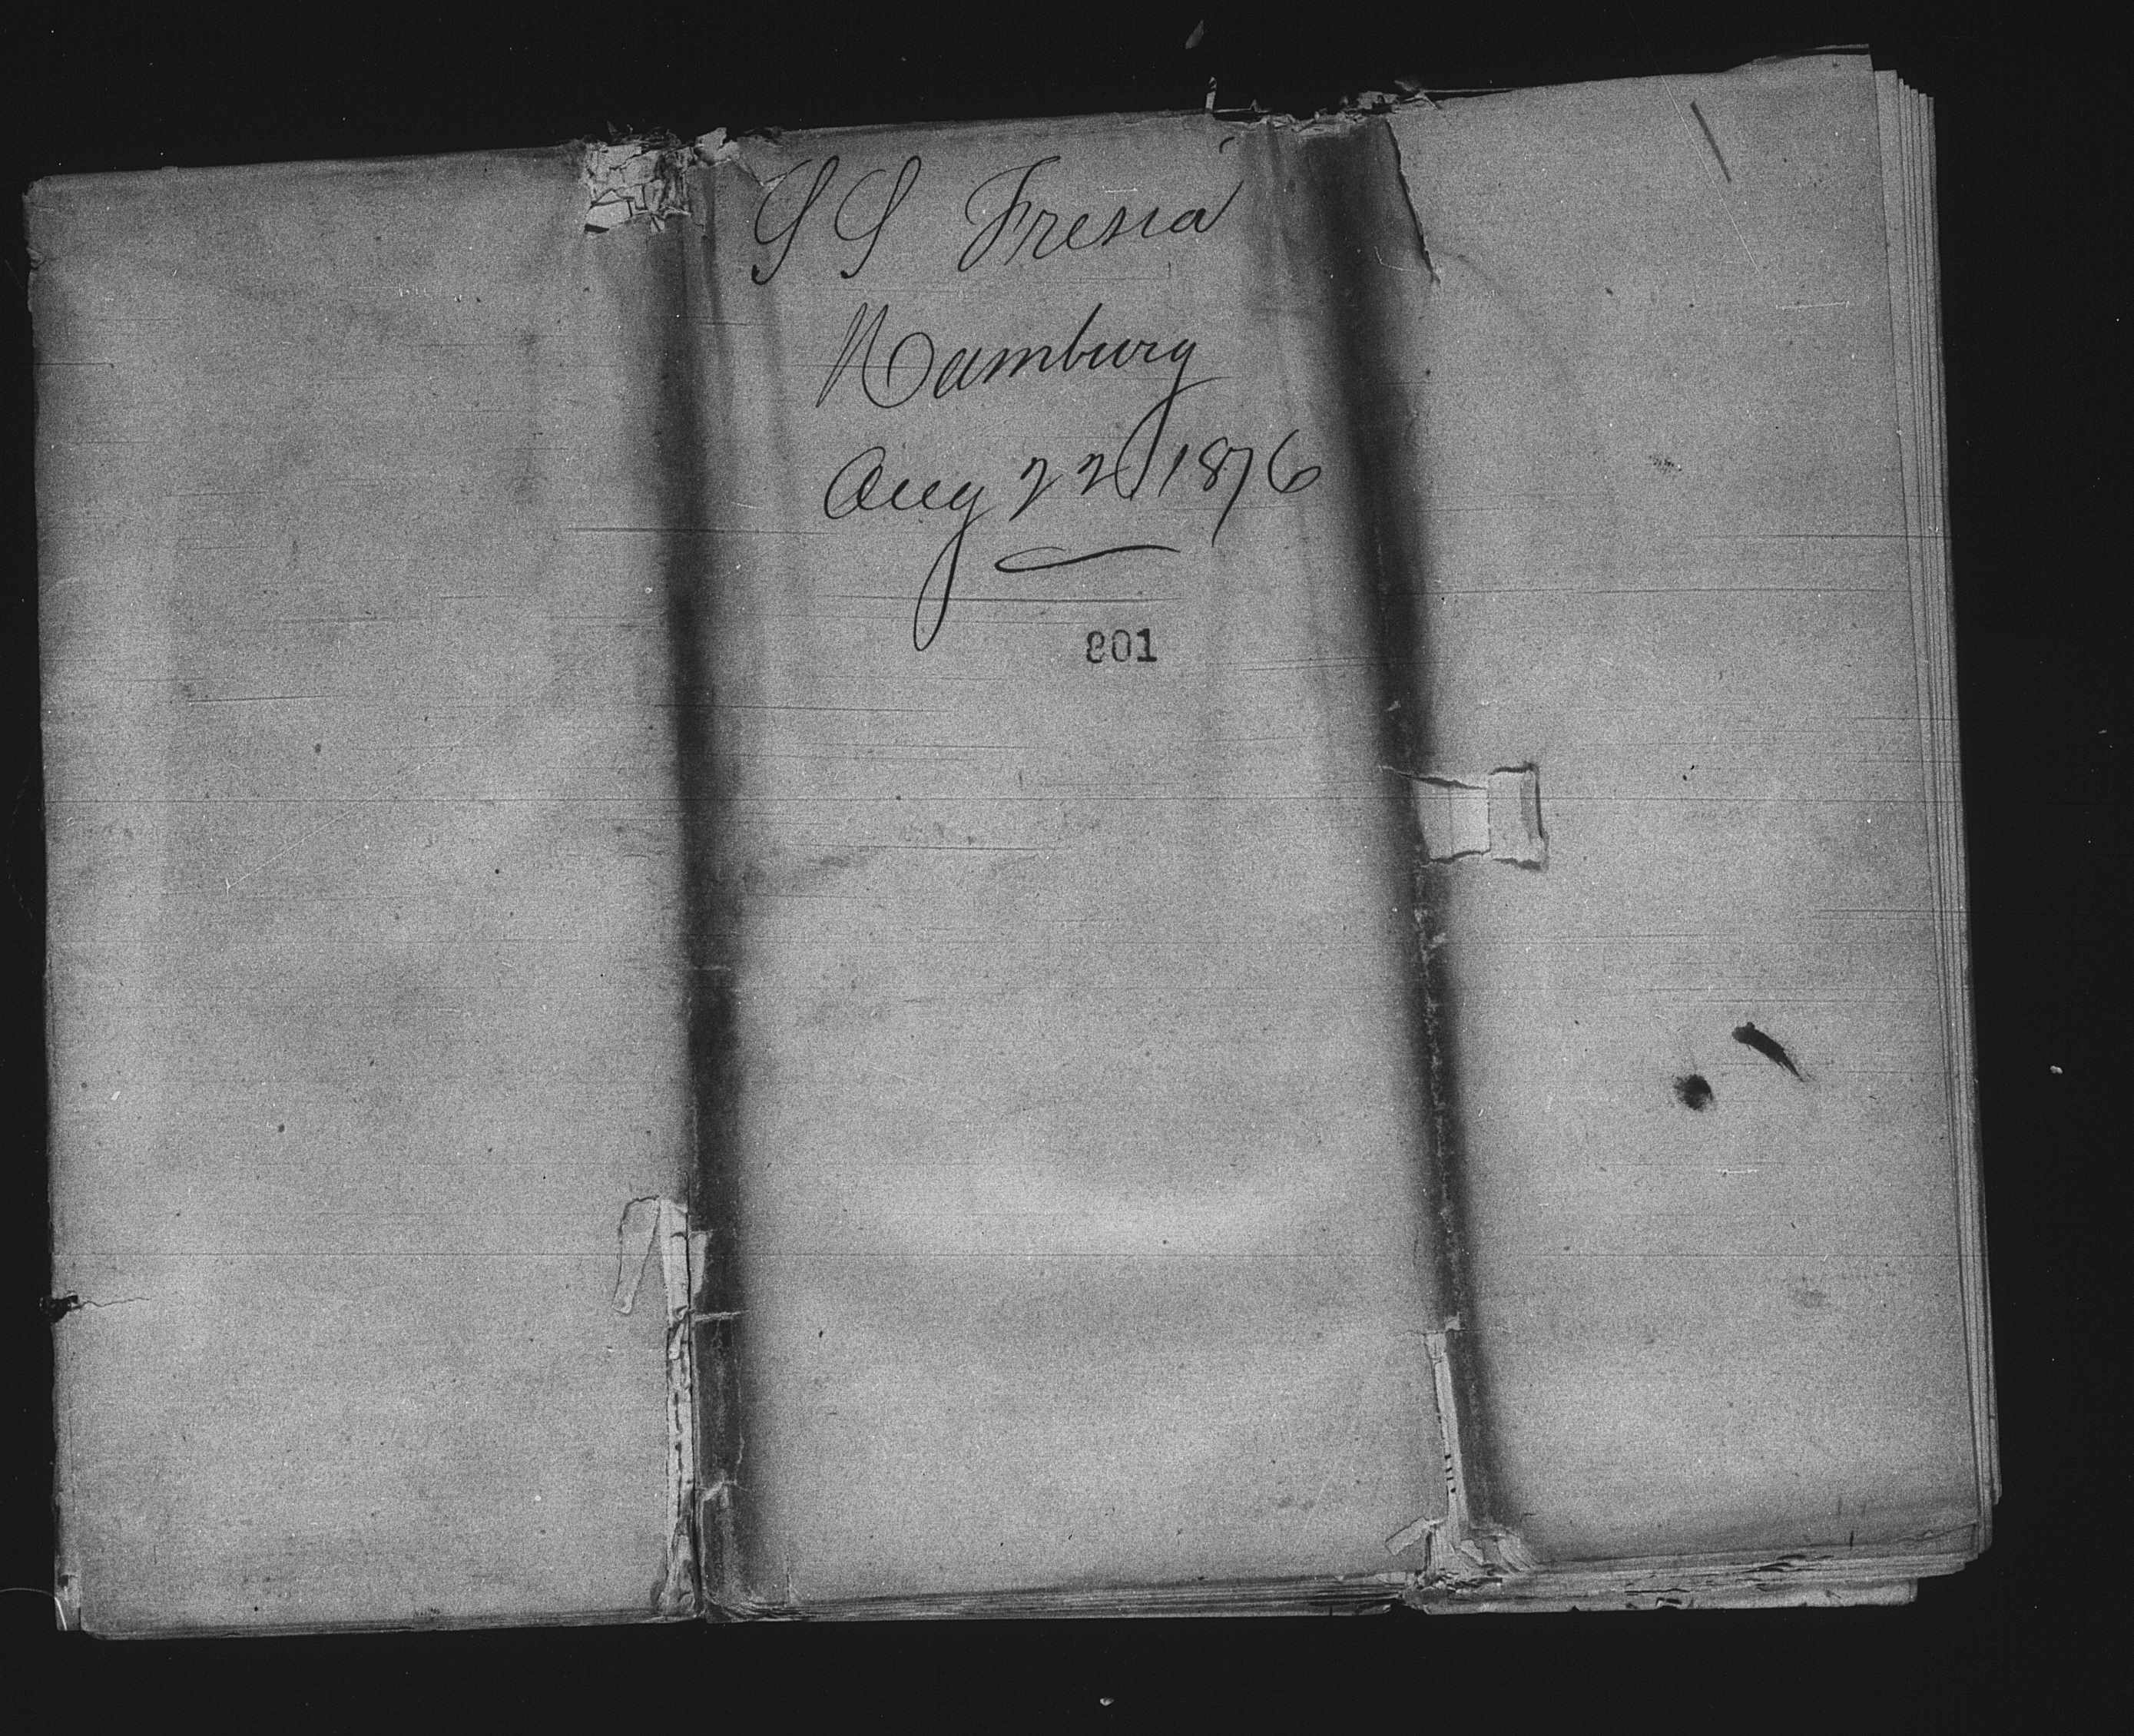 SS Fresia
Hamburg
Aug 22 1876
801